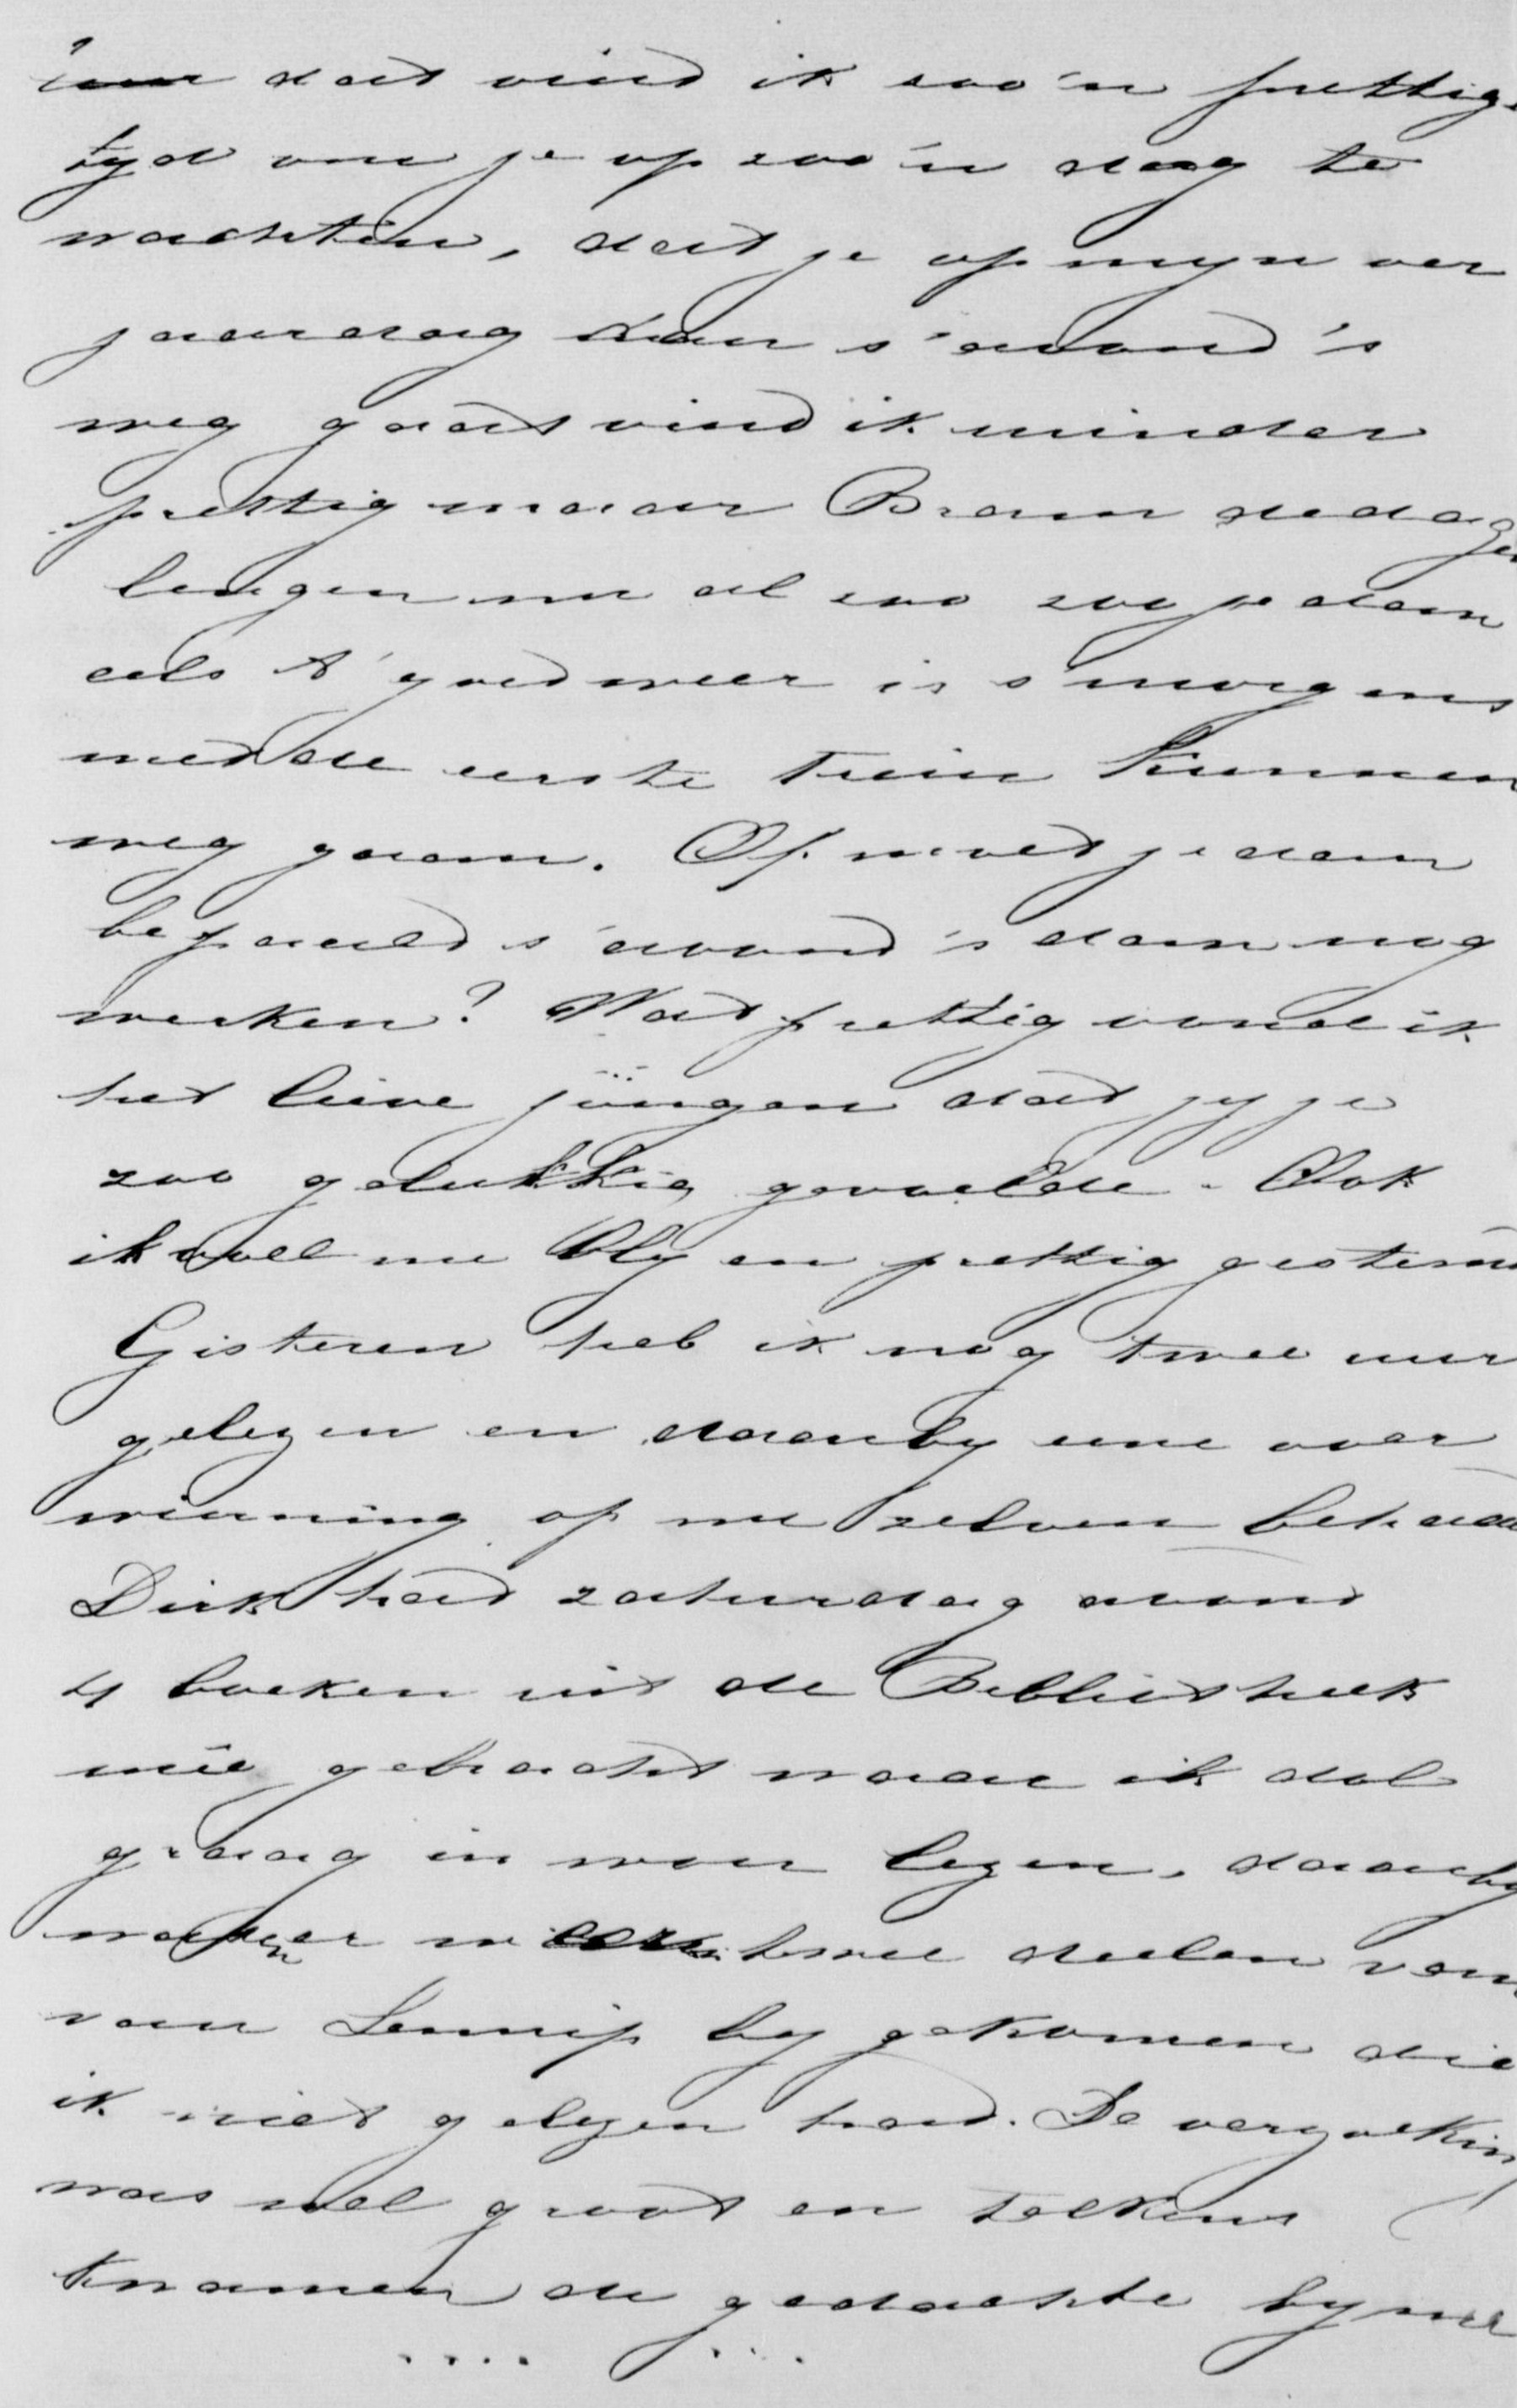 dat vind ik zoo'n prettige
tyd om je op zoo'n dag te
wachten, dat je op myn ver
jaardag dan s'avond's
weg gaat vind ik minder
prettig maar Bram de dagen
lengen nu al zoo zou je dan
als t' goed weer is s'morgens
met de eerste trein kunnen
weg gaan. Of moet je dan
bepaald s'avond's dan nog
werken? Wat prettig vond ik
het lieve jongen dat jy je
zoo gelukkig gevoelde. Ook
ik voel me bly en prettig gestemd
Gisteren heb ik nog twee uur
gelezen en daarby eene over
winning op me zelven behaald
Dirk had zaturdag avond
4 boeken uit de Bibliotheek
meê gebracht waar ik dol
graag in wou lezen, daarby
waren er twee deelen van
van Lennip by gekomen die
ik niet gelezen had. De verzoeking
was wel groot en telkens
kwamen de gedachte by me